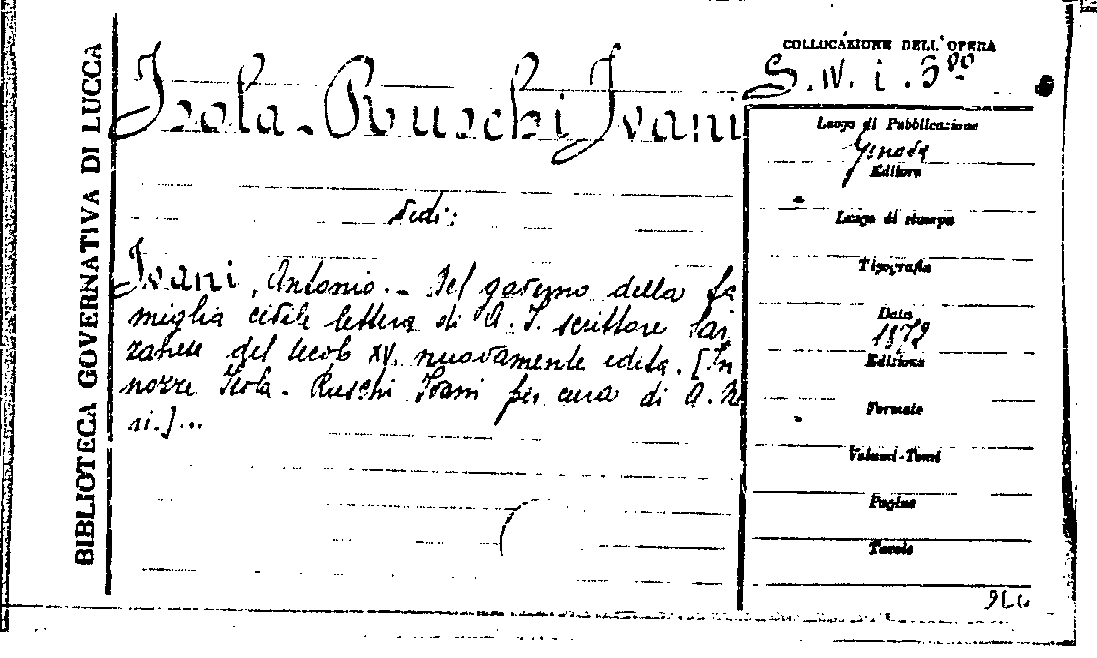 BIBLIOTECA GOVERNATIVA DI LUCCA
Isola-Ruschi Ivani
Vedi:
Ivani, Antonio. - Del governo della fa
miglia civile lettera di A. I. scrittore Sar
zanese del secolo XV. nuovamente edita. [In
nozze Isola-Ruschi Ivani per cura di A. N
ri.]...
COLLOCAZIONE DELL'OPERA
Luogo di Pubblicazione
Genova
Editore
Luogo di stampa
Tipografia
Data
1872
Edizione
Formato
Volumi-Tomi
Pagine
Tavole